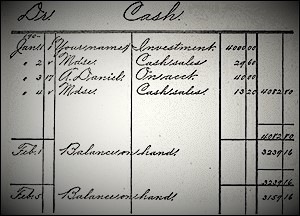 Dr. Cash.
190-
Jan. 1 Your name, Investment 4000 00
" 2 Mdse. Cash sales 29 60
" 3 A. Daniels On acct. 40 00
" 4 Mdse. Cash sales 13 20 4082 80
4082 80
Feb. 1 Balance on hand. 3239 16
3239 16
Feb. 5 Balance on hand. 3159 16